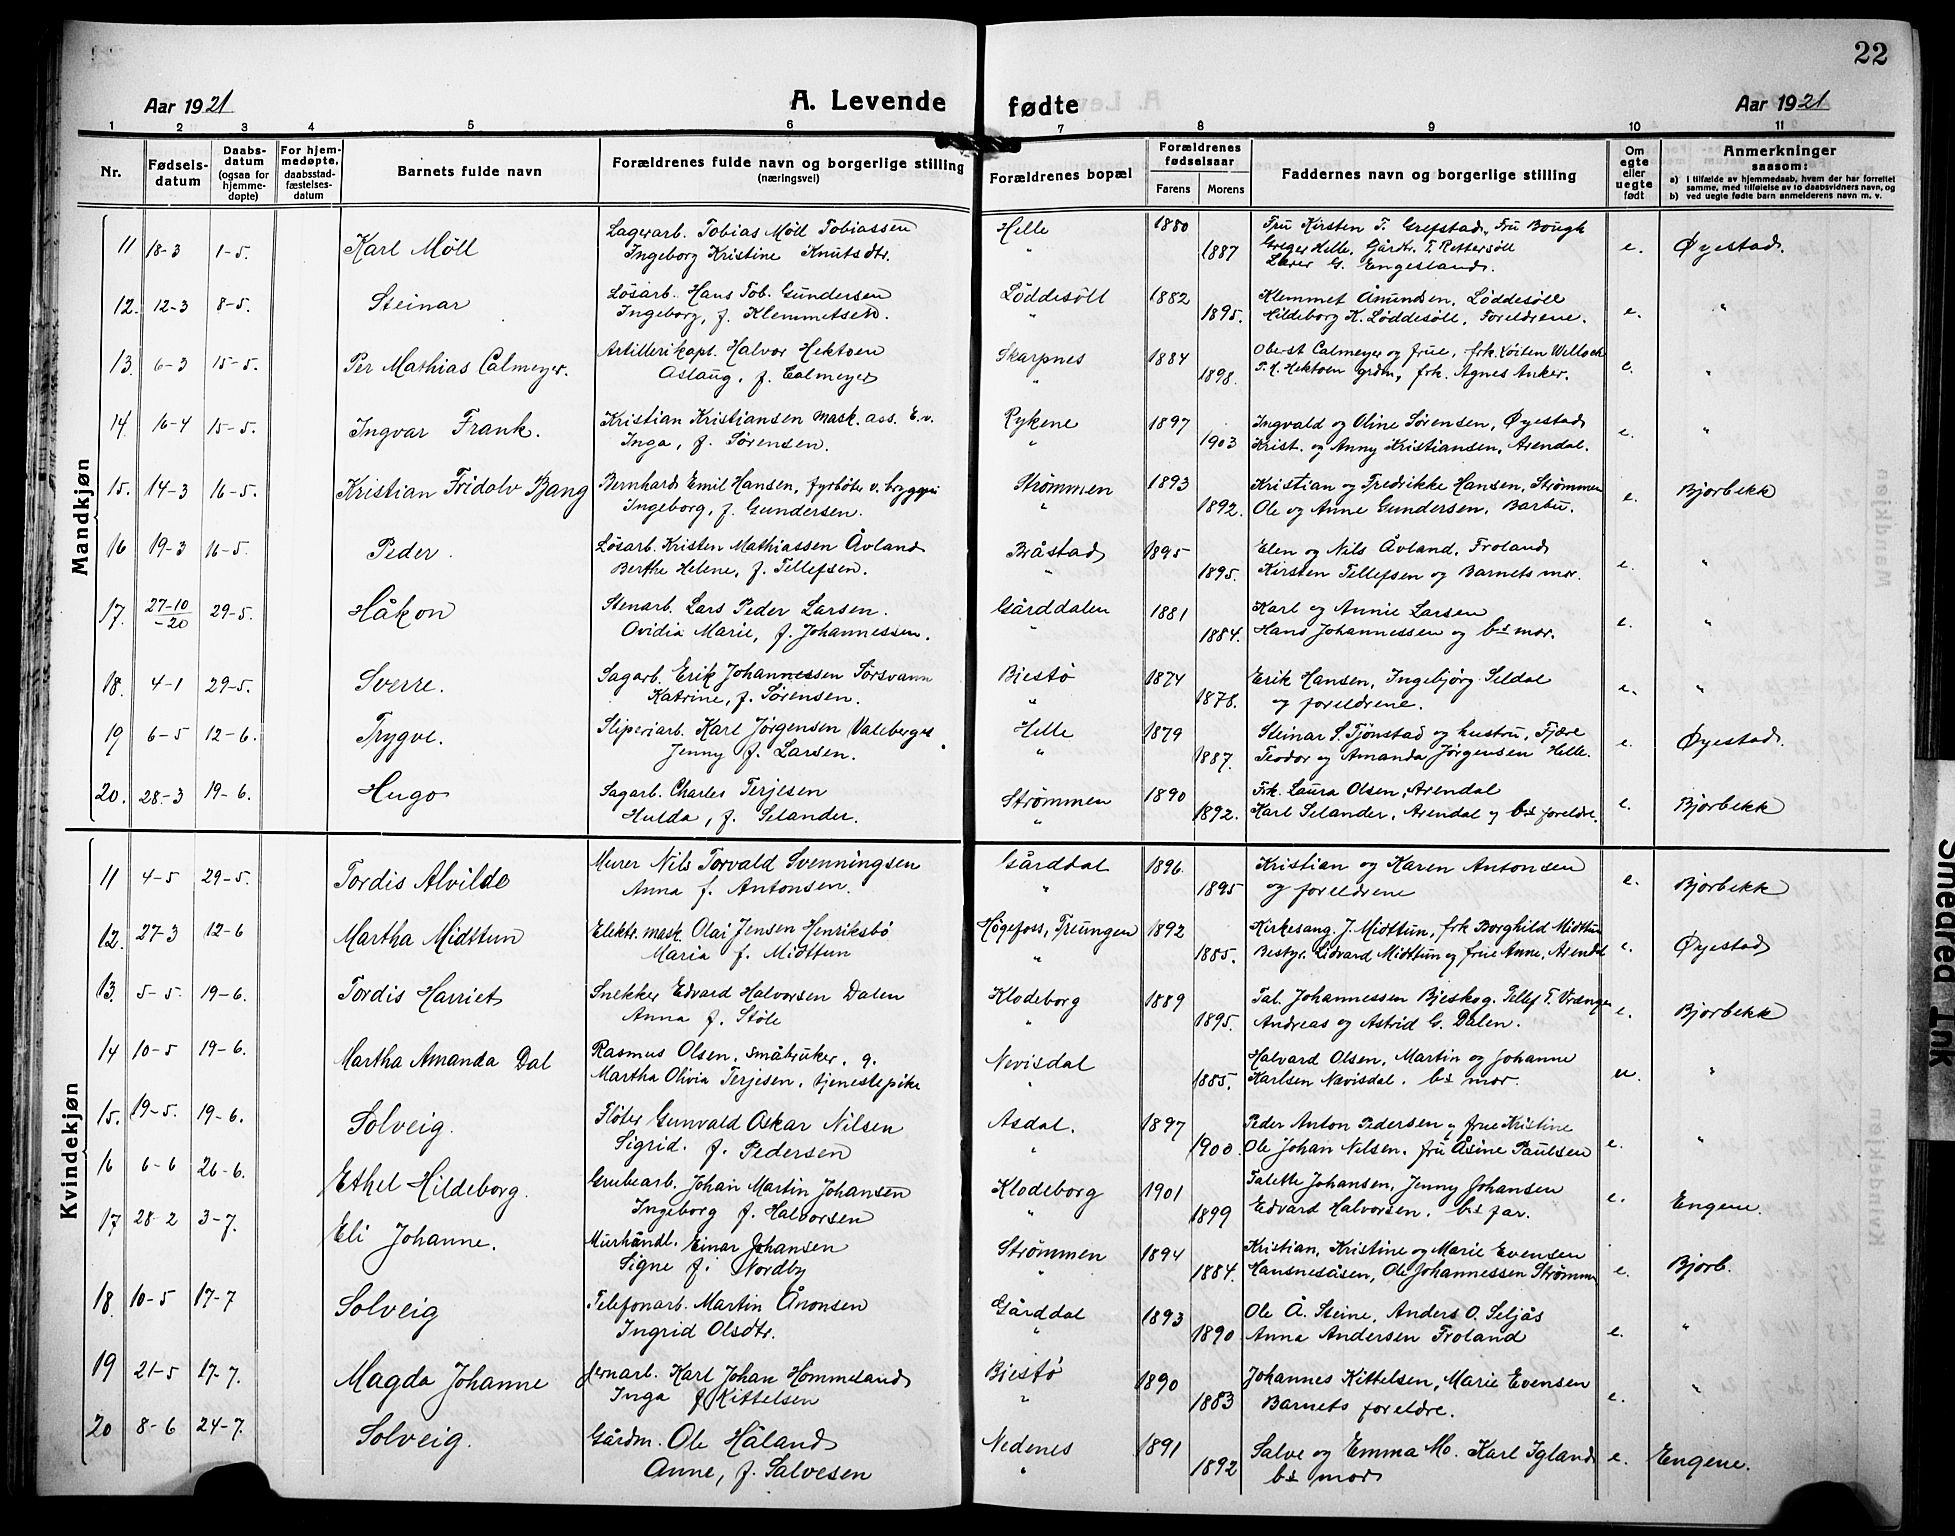 22
Aar 1921
A. Levende fødte
Aar 1921
1 2 3 4 5 6 7 8 9 10 11
Nr.
Fødsels-
datum
Daabs-
datum
(ogsaa for
hjemme-
døpte)
For hjem-
medøpte,
daabsstad-
fæstelses-
datum
Barnets fulde navn
Forældrenes fulde navn og borgerlige stilling
(næringsvei)
Forældrenes bopæl
Forældrenes
fødselsaar
Farens Morens
Faddernes navn og borgerlige stilling
Om
egte
eller
uegte
født
Anmerkninger
saasom:
a) i tilfælde av hjemmedaab, hvem der har forrettet
samme, med tilføielse av to daabsvidners navn, og
b) ved uegte fødte barn anmelderens navn m. v.
Mandkjøn
11 18-3 1-5. Karl Møll Lagerarb. Tobias Møll Tobiassen Helle 1880 Fru Kirsten T. Grefstad, Fru Bough
Ingeborg Kristine Knutsdtr. " 1887 Greger Helle, Gårdr. T. Rettersöll e. Øyestad.
Lærer G. Engesland.
12. 12-3 8-5. Steinar Løsarb. Hans Tob. Gundersen Löddesöll 1882 Klemmet Åmundsen, Löddesöll
Ingeborg, f. Klemmetsen. " 1895. Hildeborg K. Løddesøll, Foreldrene. e. "
13. 6-3 15-5. Per Mathias Calmeyer. Artillerikapt. Halvor Hektoen Skarpnes 1884 Oberst Calmeyer og frue, frk. Löiten Willoch
Aslaug, f. Calmeyer " 1898. T. H. Hektoen grdm, frk. Agnes Anker. e. "
14. 16-4 15-5. Ingvar Frank. Kristian Kristiansen mask. ass. E.v. Rykene 1897 Ingvald og Oline Sørensen, Øyestad
Inga, f. Sørensen. " 1903 Krist. og Anny Kristiansen, Arendal. e. "
15. 14-3 16-5. Kristian Fridolv Bang Bernhard Emil Hansen, fyrbøter v. bryggri Strømmen 1893 Kristian og Fredrikke Hansen, Strømmen
Ingeborg, f. Gundersen. " 1892. Ole og Anne Gundersen, Barbu. e. Bjorbekk
16 19-3 16-5. Peder. Løsarb. Kristen Mathiassen Åvland Bråstad 1895 Elen og Nils Åvland, Froland
Berthe Helene, f. Tellefsen. " 1895. Kirsten Tellefsen og Barnets mor. e. "
17. 27-10 -20 29-5. Håkon Stenarb. Lars Peder Larsen. Gårddalen 1881 Karl og Annie Larsen
Ovidia Marie, f. Johannessen. " 1884. Hans Johannessen og bs mor. e. "
18. 4-1 29-5. Sverre. Sagarb. Erik Johannessen Sörsvann Bjestø 1874 Erik Hansen, Ingebjörg Seldal
Katrine, f. Sørensen. " 1878. og foreldrene. e. "
19 6-5 12-6. Trygve. Sliperiarb. Karl Jørgensen Valeberget Helle 1879 Steinar S. Tjönstad og hustru, Fjære
Jenny f. Larsen. " 1887. Teodor og Amanda Jørgensen Helle. e. Øyestad.
20. 28-3 19-6. Hugo Sagarb. Charles Terjesen Strømmen 1890 Frk. Laura Olsen, Arendal
Hulda, f. Selander. " 1892. Karl Selander, Arendal og bs foreldre. e. Bjorbekk
Kvindekjøn
11 4-5 29-5. Tordis Alvilde Murer Nils Torvald Svenningsen Gårddal 1896. Kristian og Karen Antonsen
Anna f. Antonsen. " 1895 og foreldrene e. Bjorbekk
12. 27-3 12-6 Martha Midttun Elektr. mask. Olai Jensen Henriksbö Høgefoss, Treungen 1892 Kirkesang. J. Midttun, frk Borghild Midttun
Maria f. Midttun " 1885. Bestyr. Lidvard Midttun og frue Anne, Arendal e. Øyestad
13. 5-5. 19-6. Tordis Harriet Snekker Edvard Halvorsen Dalen Klodeborg 1889 Tal. Johannessen Bjeskog. Tellef T. Vrængen
Anna f. Støle " 1895. Andreas og Astrid G. Dalen. e. Bjorbekk
14 10-5 19-6. Martha Amanda Dal Rasmus Olsen, småbruker, g. Nevisdal Halvard Olsen, Martin og Johanne
Martha Olivia Terjesen, tjenestepike " 1885. Karlsen Nævisdal. bs mor. u. "
15. 19-5. 19-6. Solveig. Fløter Gunvald Oskar Nilsen Asdal. 1897 Peder Anton Pedersen og frue Kristine
Sigrid. f. Pedersen " 1900. Ole Johan Nilsen. fru Åsine Paulsen e. "
16 6-6 26-6. Ethel Hildeborg. Grubearb. Johan Martin Johansen Klodeborg 1901 Talette Johansen, Jenny Johansen
Ingeborg f. Halvorsen " 1899 Edvard Halvorsen. bs far. e. Engene.
17 28-2 3-7. Eli Johanne. Murhåndl. Einar Johansen Strømmen 1894 Kristian, Kristine og Marie Evensen
Signe f. Nordby " 1884. Hansnesåsen, Ole Johannessen Strømmen e. Bjorb.
18 10-5 17-7 Solveig Telefonarb. Martin Ånonsen Gårddal 1893 Ole Å. Steine, Anders O. Seljås
Ingrid Olsdtr. " 1890 Anna Andersen Froland e. "
19 21-5 17-7. Magda Johanne Jernarb. Karl Johan Hommesand Bjestø 1890 Johannes Kittelsen, Marie Evensen
Inga f. Kittelsen " 1883 Barnets foreldre. e. "
20 8-6 24-7. Solveig. Gårdm. Ole Håland Nedenes 1891 Salve og Emma Mo. Karl Igland
Anne, f. Salvesen " 1892 bs mor e. Engene.
Smeared Ink